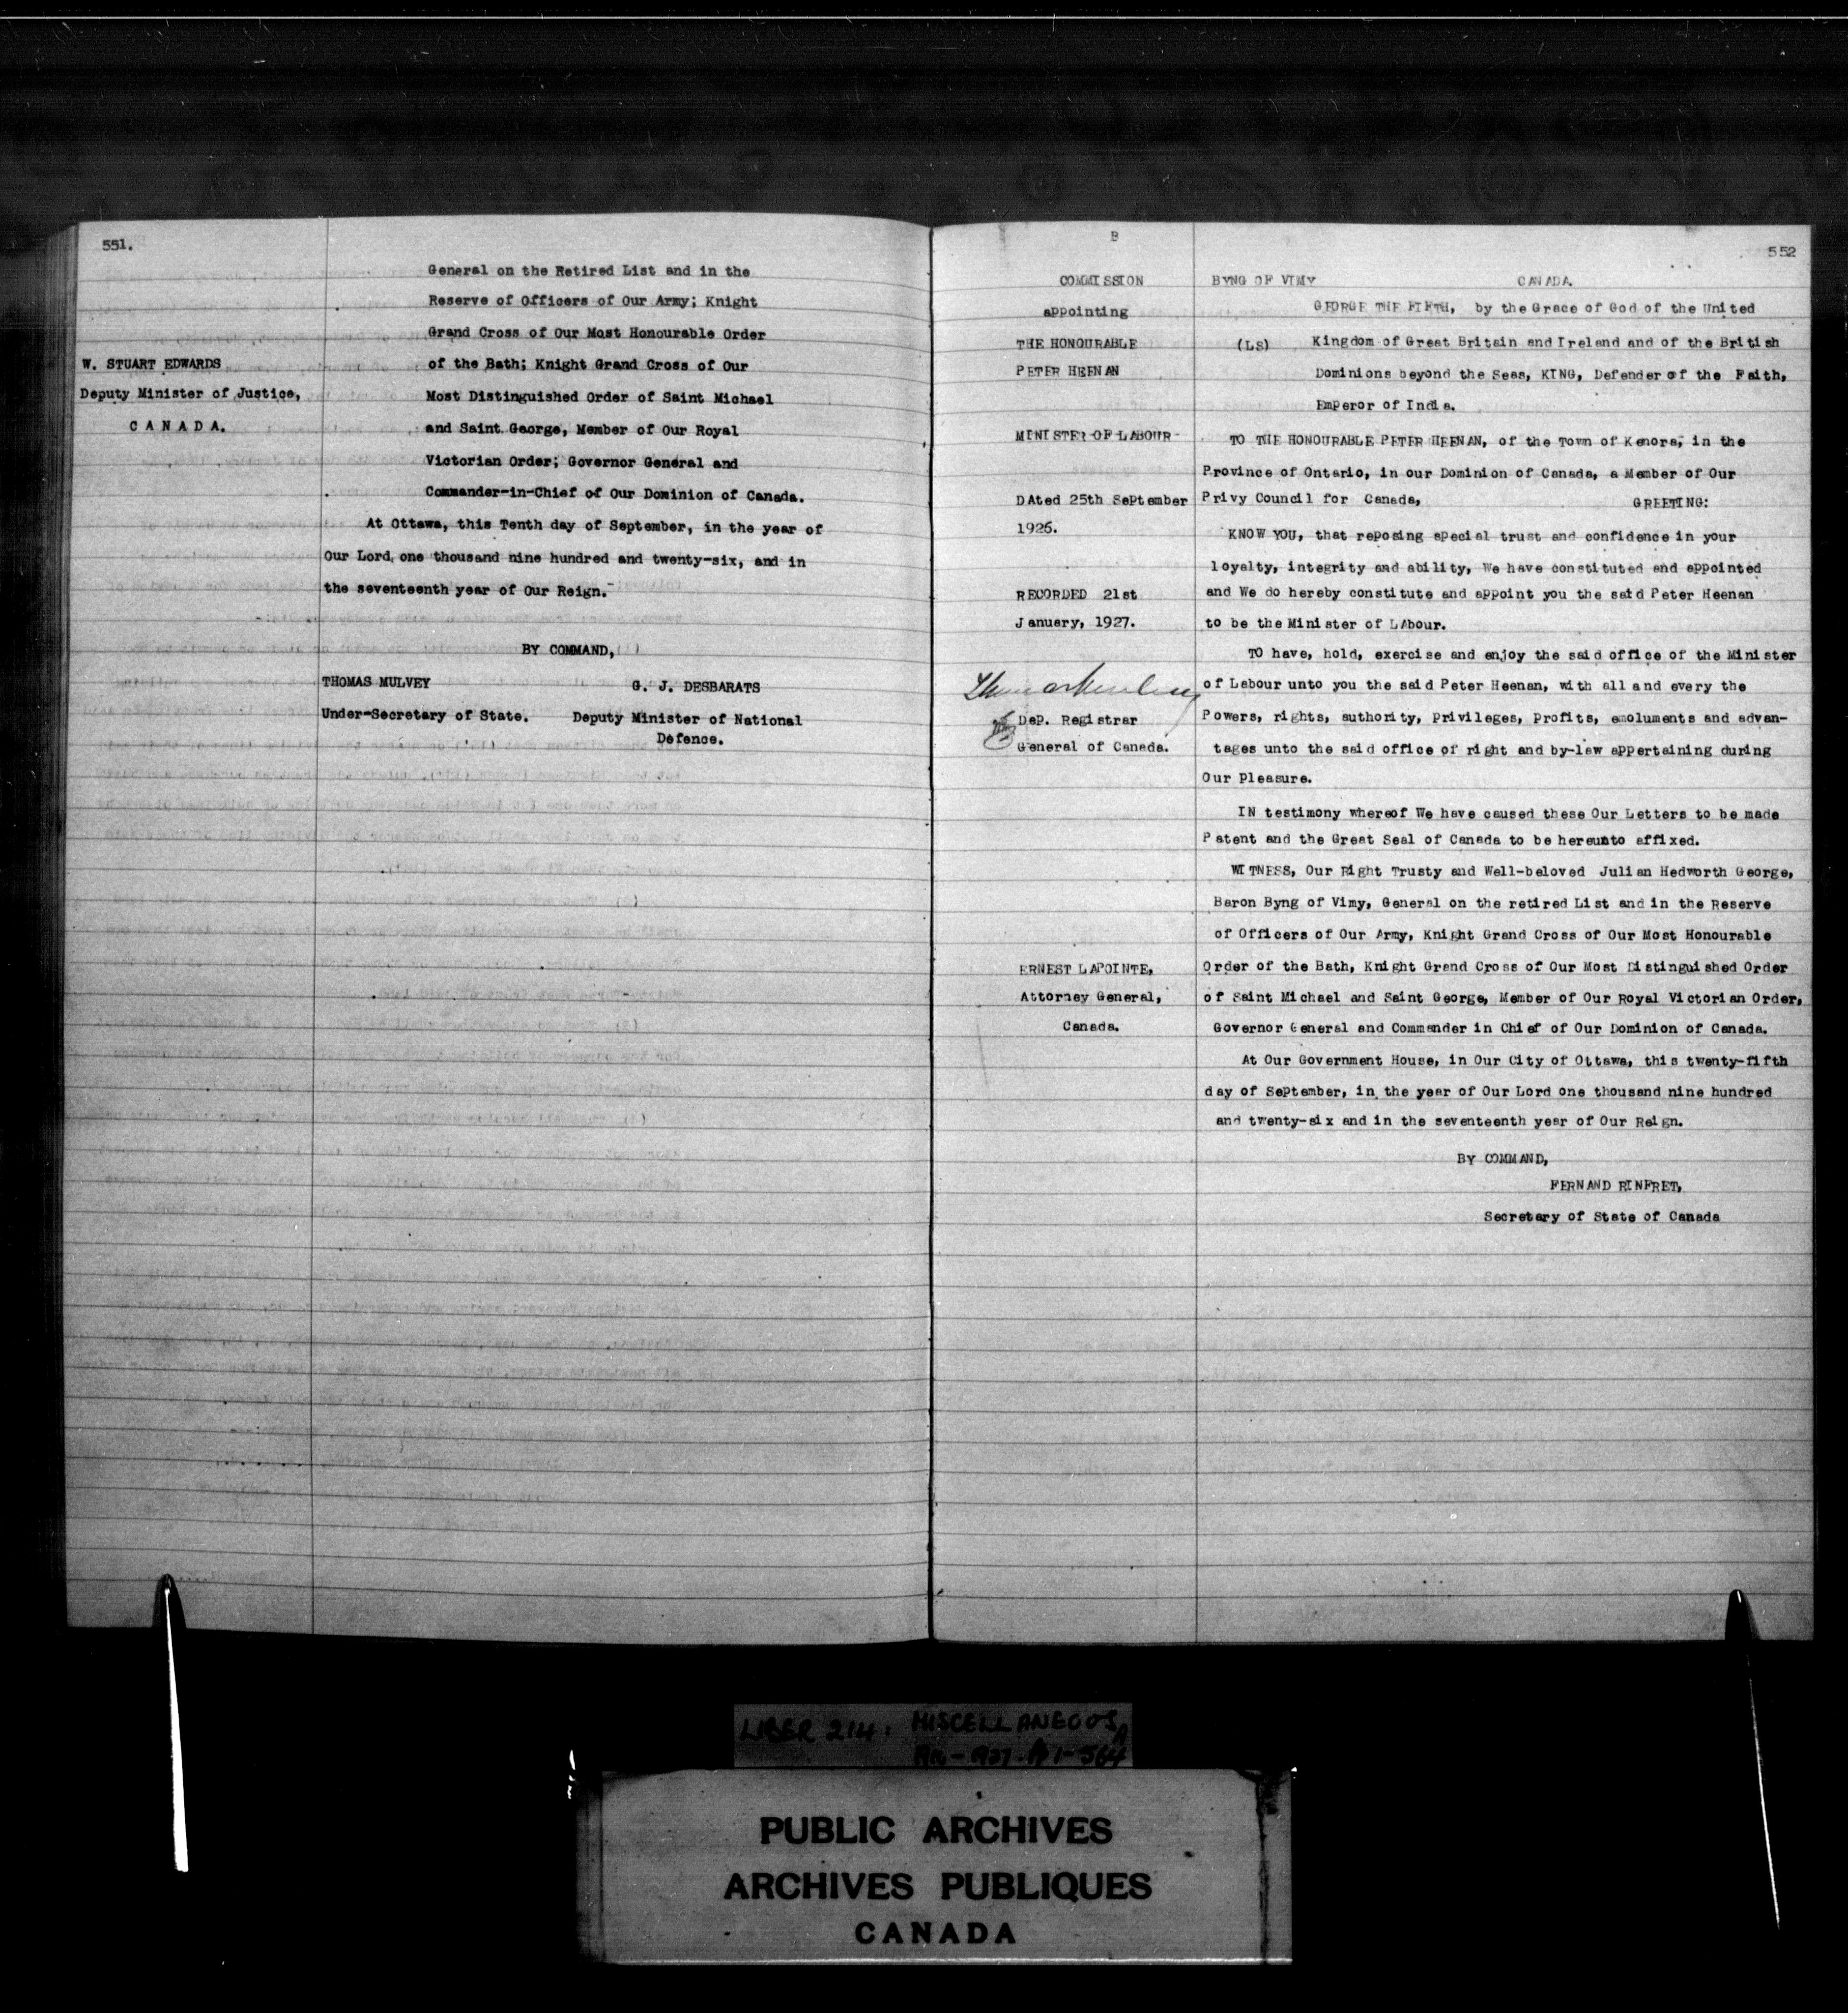 551.
W. STUART EDWARDS
Deputy Minister of Justice,
C A N A D A.
General on the Retired List and in the
Reserve of Officers of Our Army; Knight
Grand Cross of Our Most Honourable Order
of the Bath; Knight Grand Cross of Our
Most Distinguished Order of Saint Michael
and Saint George, Member of Our Royal
Victorian Order; Governor General and
Commander-in-Chief of Our Dominion of Canada.
At Ottawa, this Tenth day of September, in the year of
Our Lord one thousand nine hundred and twenty-six, and in
the seventeenth year of Our Reign.
BY COMMAND,
THOMAS MULVEY
G. J. DESBARATS
Under-Secretary of State.
Deputy Minister of National
Defence.
B
552
COMMISSION
appointing
THE HONOURABLE
PETER HEENAN
MINISTER OF LABOUR
DAted 25th September
1926.
RECORDED 21st
January, 1927.
Thomas Mulvey
Dep. Registrar
General of Canada.
ERNEST LAPOINTE,
Attorney General,
Canada.
BYNG OF VIMY
CANADA.
(LS)
GEORGE THE FIFTH, by the Grace of God of the United
Kingdom of Great Britain and Ireland and of the British
Dominions beyond the Seas, KING, Defender of the Faith,
Emperor of India.
TO THE HONOURABLE PETER HEENAN, of the Town of Kenora, in the
Province of Ontario, in our Dominion of Canada, a Member of Our
Privy Council for Canada, GREETING:
KNOW YOU, that reposing special trust and confidence in your
loyalty, integrity and ability, We have constituted and appointed
and We do hereby constitute and appoint you the said Peter Heenan
to be the Minister of LAbour.
TO have, hold, exercise and enjoy the said office of the Minister
of Labour unto you the said Peter Heenan, with all and every the
Powers, rights, authority, privileges, profits, emoluments and advan-
tages unto the said office of right and by-law appertaining during
Our Pleasure.
IN testimony whereof We have caused these Our Letters to be made
Patent and the Great Seal of Canada to be hereunto affixed.
WITNESS, Our Right Trusty and Well-beloved Julian Hedworth George,
Baron Byng of Vimy, General on the retired List and in the Reserve
of Officers of Our Army, Knight Grand Cross of Our Most Honourable
Order of the Bath, Knight Grand Cross of Our Most Distinguished Order
of Saint Michael and Saint George, Member of Our Royal Victorian Order,
Governor General and Commander in Chief of Our Dominion of Canada.
At Our Government House, in Our City of Ottawa, this twenty-fifth
day of September, in the year of Our Lord one thousand nine hundred
and twenty-six and in the seventeenth year of Our Reign.
BY COMMAND,
FERNAND RINFRET,
Secretary of State of Canada
LIBER 214: MISCELLANEOUS
1-564
PUBLIC ARCHIVES
ARCHIVES PUBLIQUES
CANADA